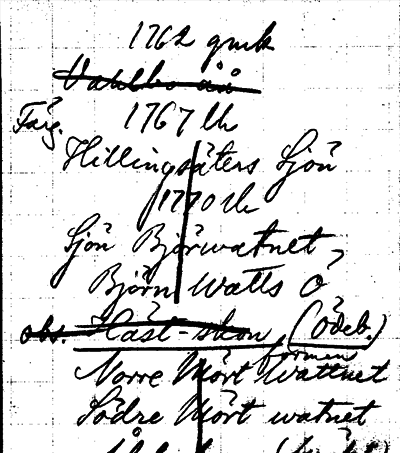 1762 gmk
Vahlbo åå
Färg. 1767 lh
Hillingsäters Sjön
1770 lh
Sjön Björwatnet,
Björn Watts Ö
obs. Häst-skon (Ödeb.)
formen
Norre Mört Wattnet
Södre Mört watnet